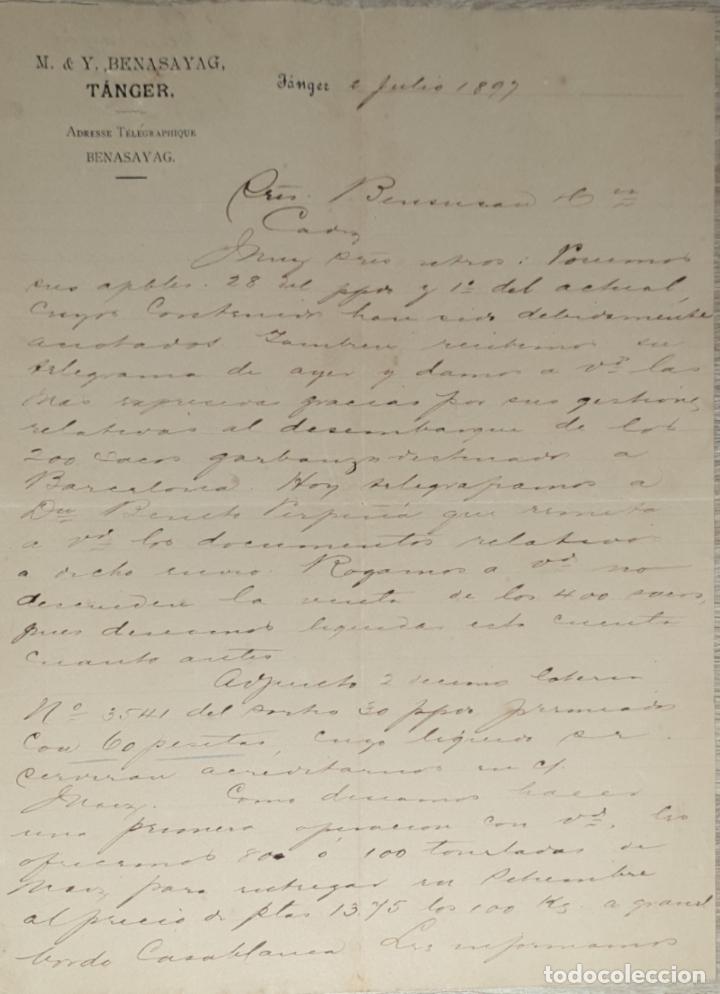 M. & Y. BENASAYAG,
TÁNGER.
ADRESSE TÉLÉGRAPHIQUE
BENASAYAG.
Tánger 2 Julio 1897
Sres. Bensusan & Cia
Cadiz
Muy sres ntros: Poseemos
sus apbles. 28 del ppdo y 1º del actual
cuyos contenidos han sido debidamente
anotados Tambien recibimos su
telegrama de ayer y damos a Vds las
mas expresivas gracias por sus gestiones
relativas al desembarque de los
200 sacos garbanzos destinado a
Barcelona. Hoy telegrafiamos a
Dn Benito Perpiñá que remita
a Vds los documentos relativos
a dicho envio. Rogamos a Vds no
descuiden la venta de los 400 sacos,
pues deseamos liquidar esta cuenta
cuanto antes
Adjunto 2 decimos loteria
Nº 3541 del sorteo 30 ppdo premiados
con 60 pesetas, cuyo liquido se
serviran acreditarnos en c/.
Maiz. Como deseamos hacer
una primera operacion con Vds, les
ofrecemos 80 ó 100 toneladas de
Maiz para entregar en Setiembre
al precio de ptas 13.75 los 100 Kg. a granel
bordo Casablanca Les informamos
todocoleccion